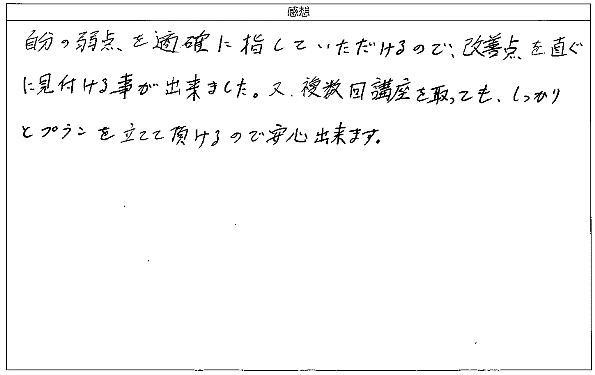 感想
自分の弱点を適確に指していただけるので、改善点を直ぐ
に見付ける事が出来ました。又、複数回講座を取っても、しっかり
とプランを立てて頂けるので安心出来ます。